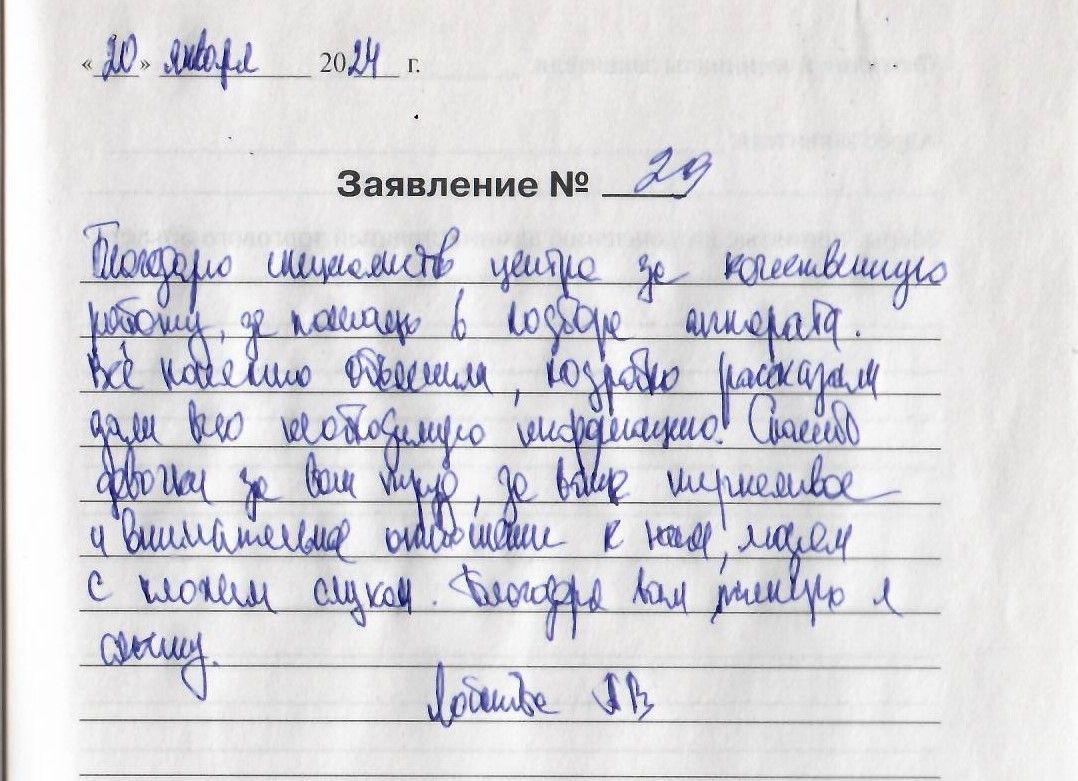 «20» января 2024 г.
Заявление № 29
Благодарю специалистов центра за качественную
работу, за помощь в подборе аппарата.
Всё понятно объяснили, подробно рассказали
дали всю необходимую информацию. Спасибо
девочки за ваш труд, за ваше терпеливое
и внимательное отношение к нам, людям
с плохим слухом. Благодаря вам теперь я
слышу.